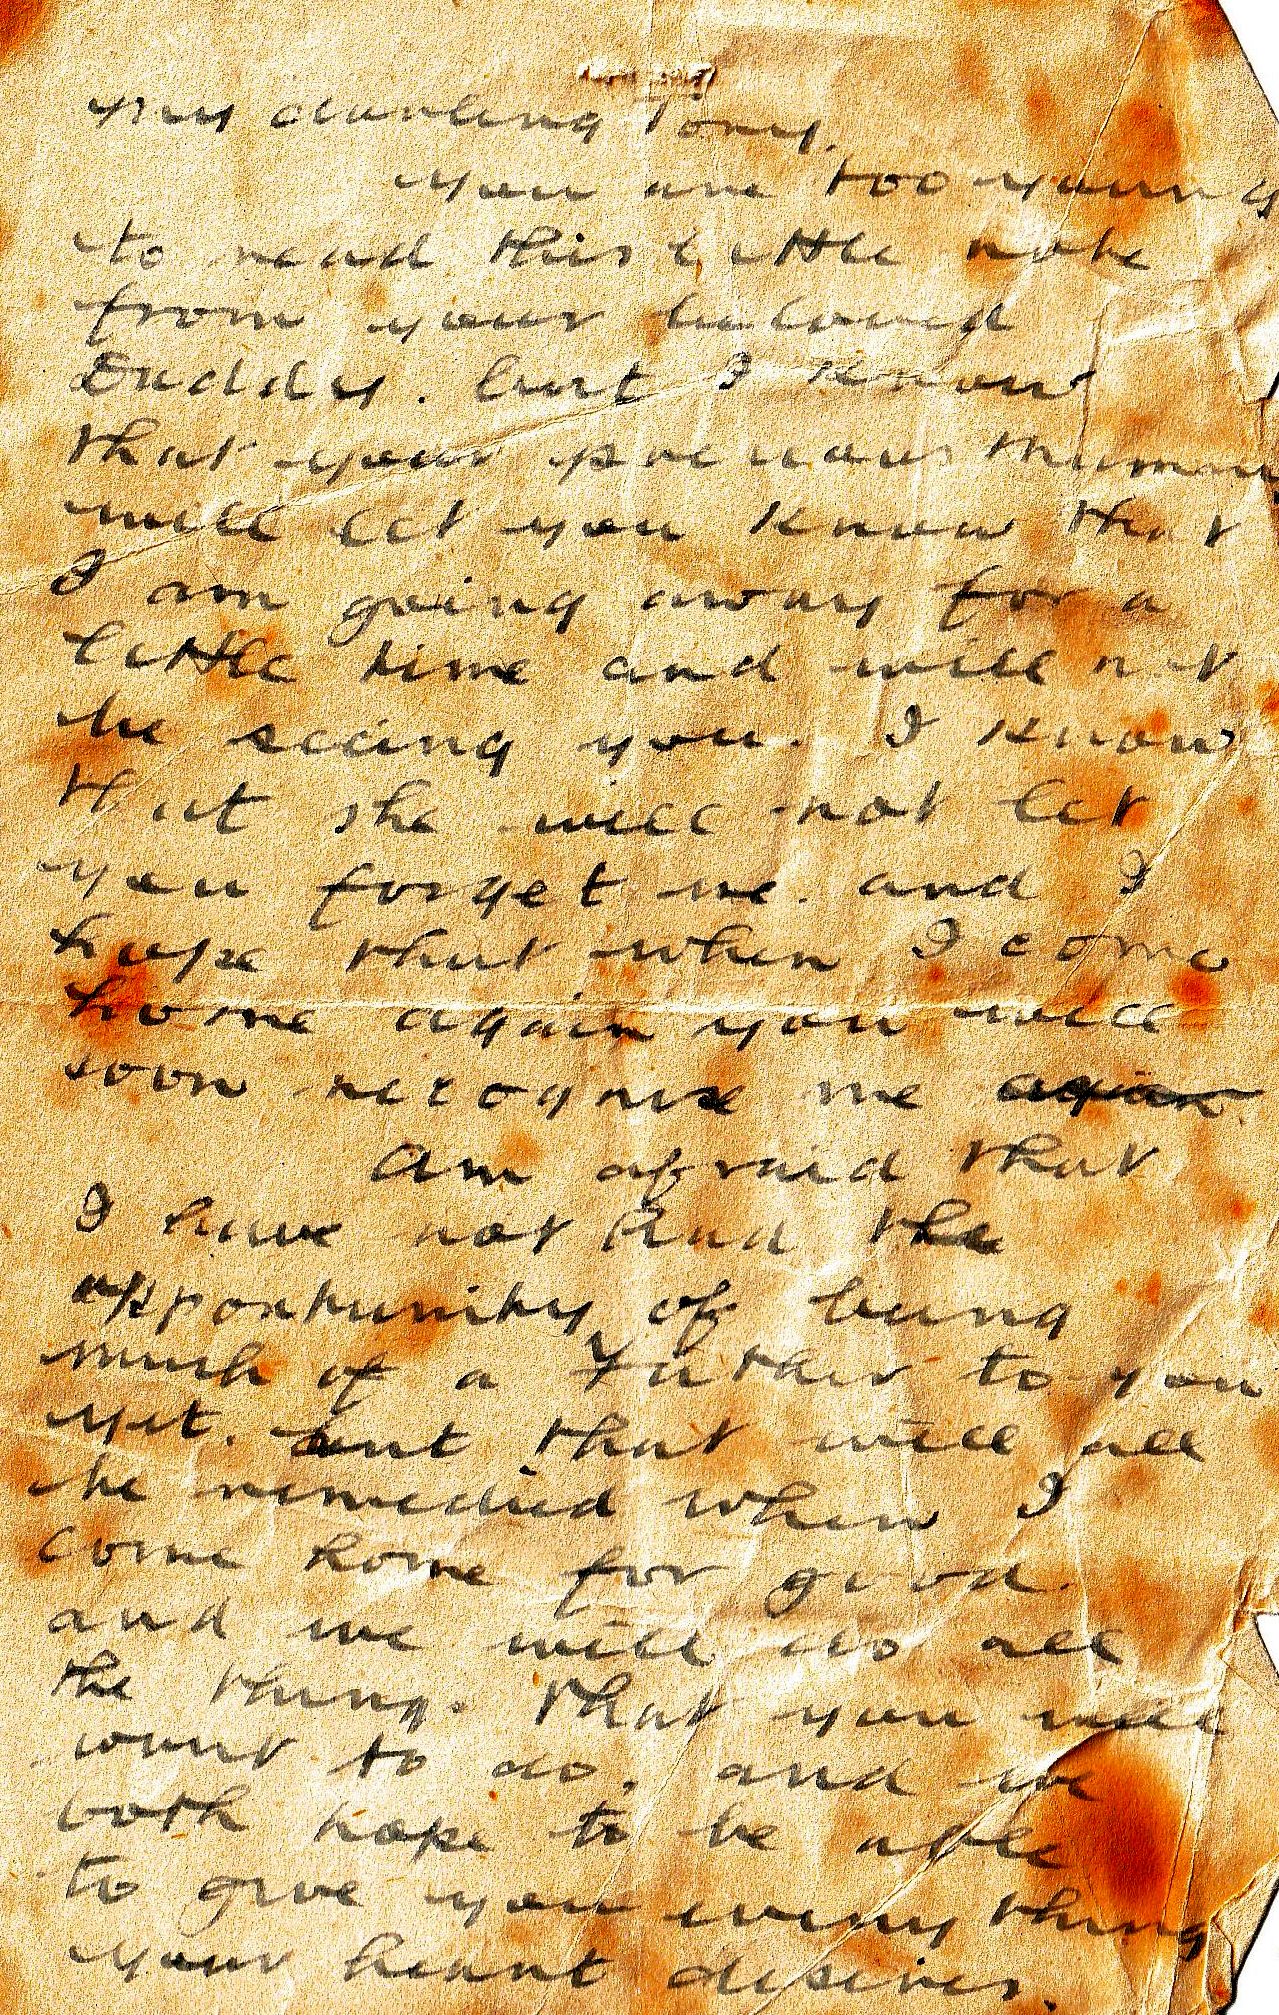 My darling Tony,
You are too young
to read this little note
from your beloved
Daddy. but I know
that your precious Mummy
will let you know that
I am going away for a
little time and will not
be seeing you. I know
that she will not let
you forget me. and I
hope that when I come
home again you will
soon recognise me again
Am afraid that
I have not had the
opportunity of being
much of a Father to you
yet. but that will all
be remedied when I
come home for good.
and we will do all
the things that you will
want to do, and we
both hope to be able
to give you every thing
your heart desires.